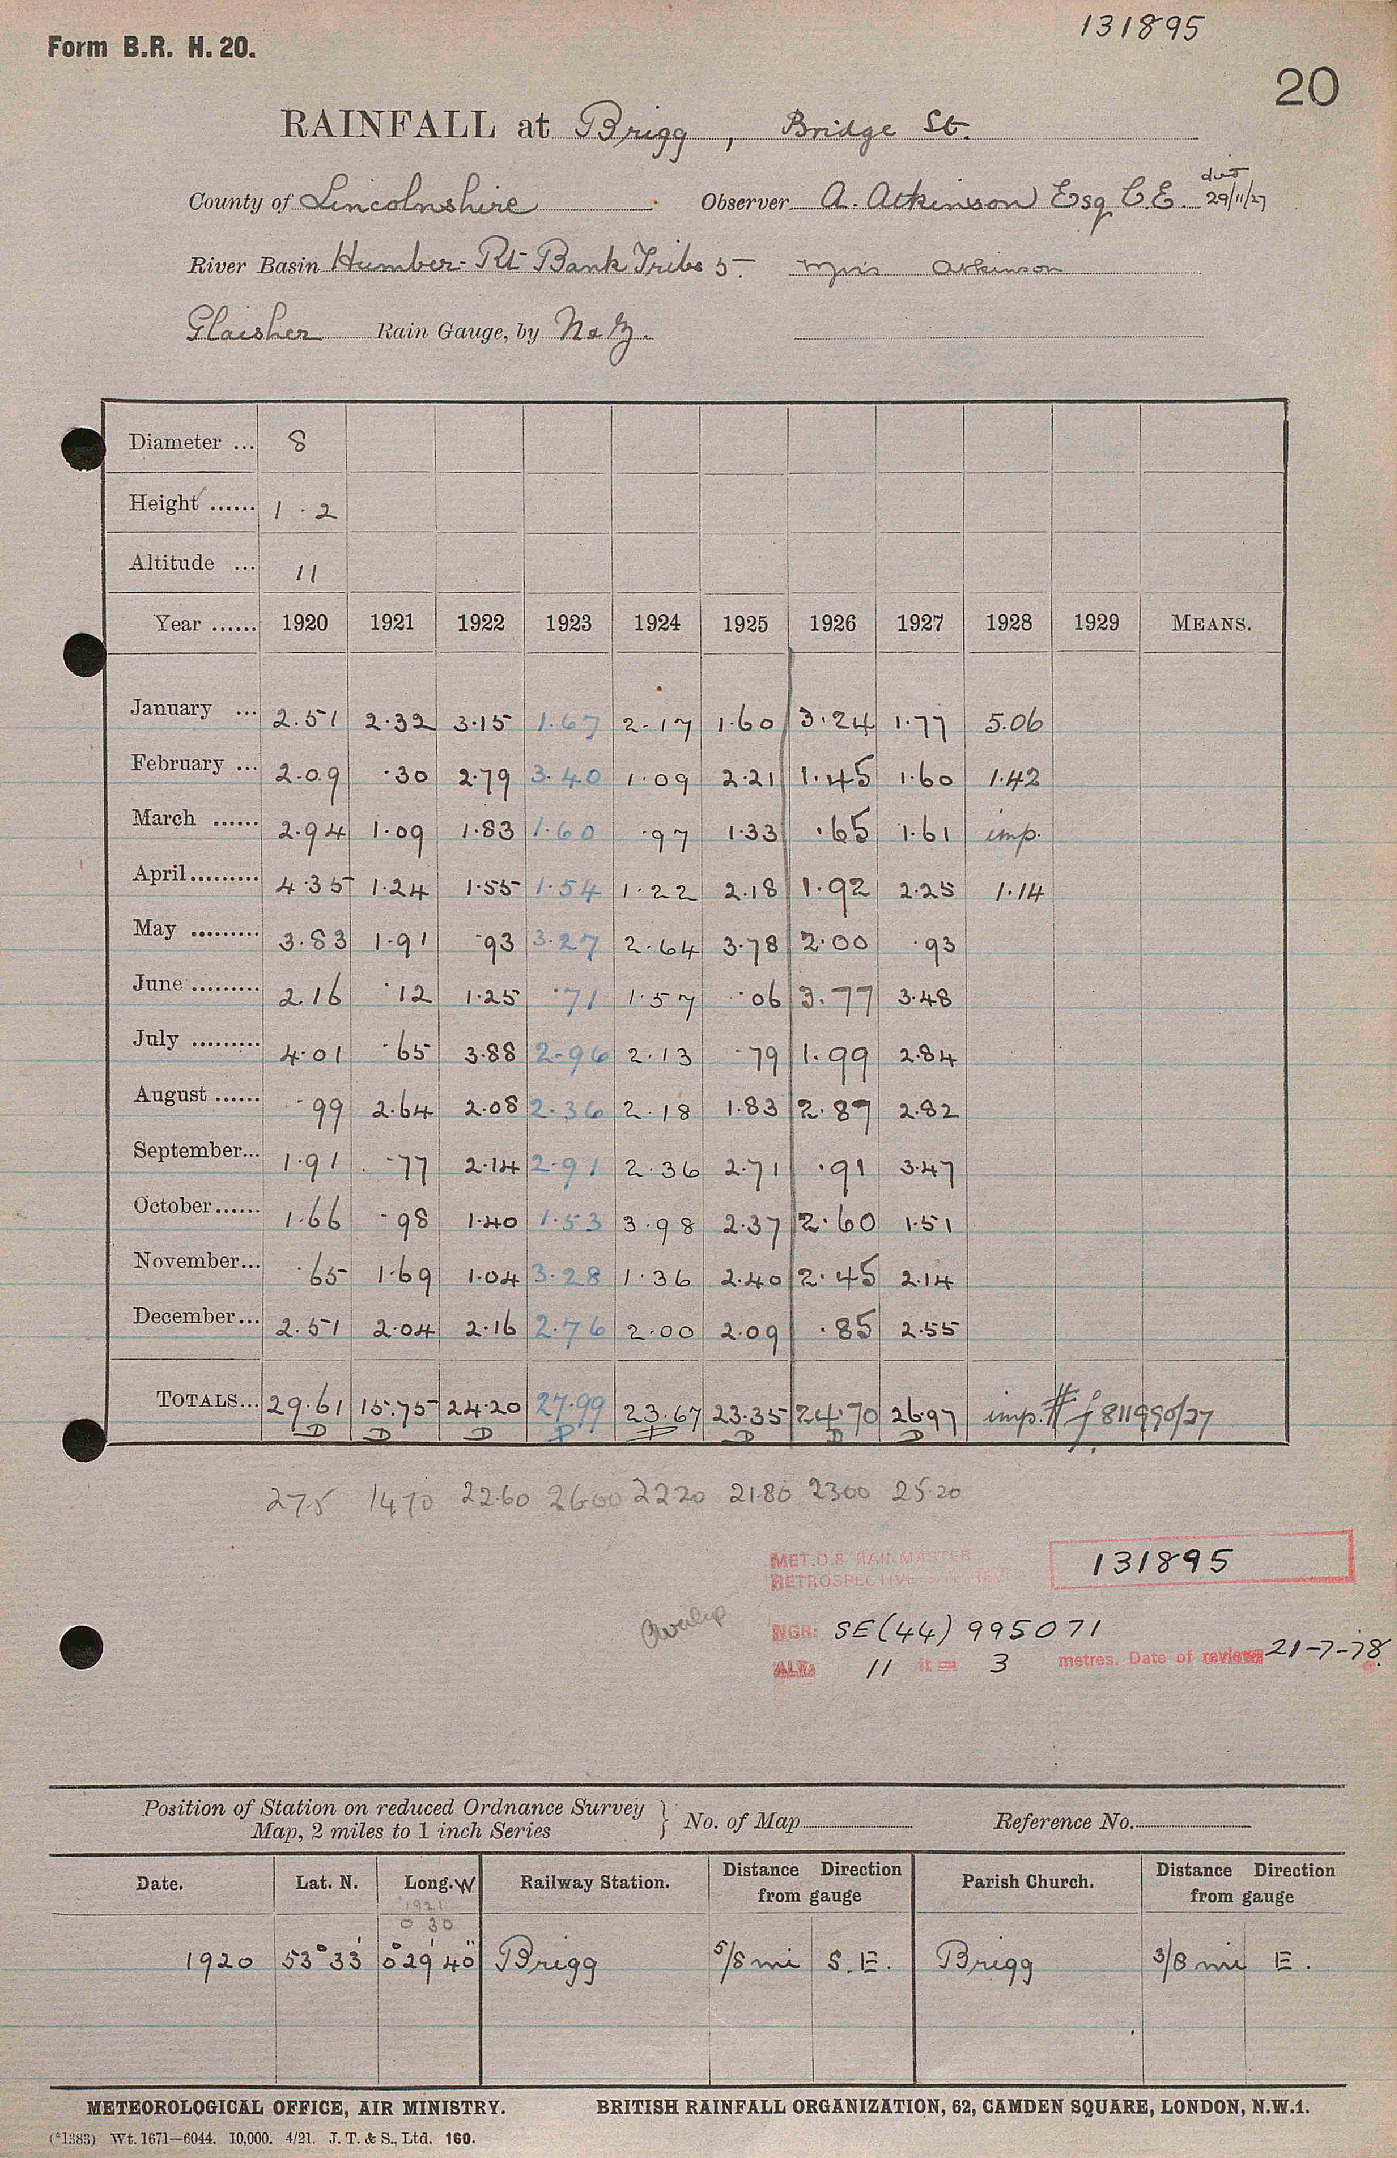 131895
Form B.R. H. 20.
20
RAINFALL at Brigg, Bridge St.
County of Lincolnshire Observer A. Atkinson Esq C.E. 29/11/27
River Basin Humber- Rt Bank Tribs 5. Miss Atkinson
Glaisher Rain Gauge, by N & Z.
Diameter ... 8
Height ...... 1 . 2
Altitude ... 11
Year ...... 1920 1921 1922 1923 1924 1925 1926 1927 1928 1929 MEANS.
January ... 2.51 2.32 3.15 1.67 2.17 1.60 3.24 1.77 5.06
February ... 2.09 .30 2.79 3.40 1.09 2.21 1.45 1.60 1.42
March ...... 2.94 1.09 1.83 1.60 .97 1.33 .65 1.61 imp.
April ......... 4.35 1.24 1.55 1.54 1.22 2.18 1.92 2.25 1.14
May ......... 3.83 1.91 .93 3.27 2.64 3.78 2.00 .93
June ......... 2.16 .12 1.25 .71 1.57 .06 3.77 3.48
July ......... 4.01 .65 3.88 2.96 2.13 .79 1.99 2.84
August ...... .99 2.64 2.08 2.36 2.18 1.83 2.87 2.82
September... 1.91 .77 2.14 2.91 2.36 2.71 .91 3.47
October...... 1.66 .98 1.40 1.53 3.98 2.37 2.60 1.51
November... .65 1.69 1.04 3.28 1.36 2.40 2.45 2.14
December... 2.51 2.04 2.16 2.76 2.00 2.09 .85 2.55
TOTALS... 29.61 15.75 24.20 27.99 23.67 23.35 24.70 26.97 imp. # f 811990/27
D D D D D D D D
275 1470 22.60 26.00 2220 21.80 2300 25.20
MET.O.8 RAINMASTER
RETROSPECTIVE
131895
NGR: SE(44) 995071
ALT: 11 ft = 3 metres. Date of review 21-7-78
Position of Station on reduced Ordnance Survey
Map, 2 miles to 1 inch Series } No. of Map Reference No.
Date. Lat. N. Long. W Railway Station. Distance Direction from gauge Parish Church. Distance Direction from gauge
1921
0 30
1920 53° 33' 0° 29' 40" Brigg 5/8 mi S.E. Brigg 3/8 mi E.
METEOROLOGICAL OFFICE, AIR MINISTRY. BRITISH RAINFALL ORGANIZATION, 62, CAMDEN SQUARE, LONDON, N.W.1.
(*1383) Wt. 1671—6044. 10,000. 4/21. J. T. & S., Ltd. 160.